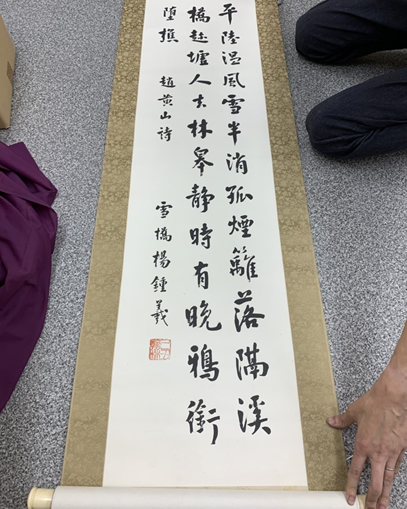 平陸温風雪半消孤煙籬落隔溪
橋趁墟人去林皋静時有晚鴉銜
墮樵 趙黄山诗 雪橋楊鍾羲